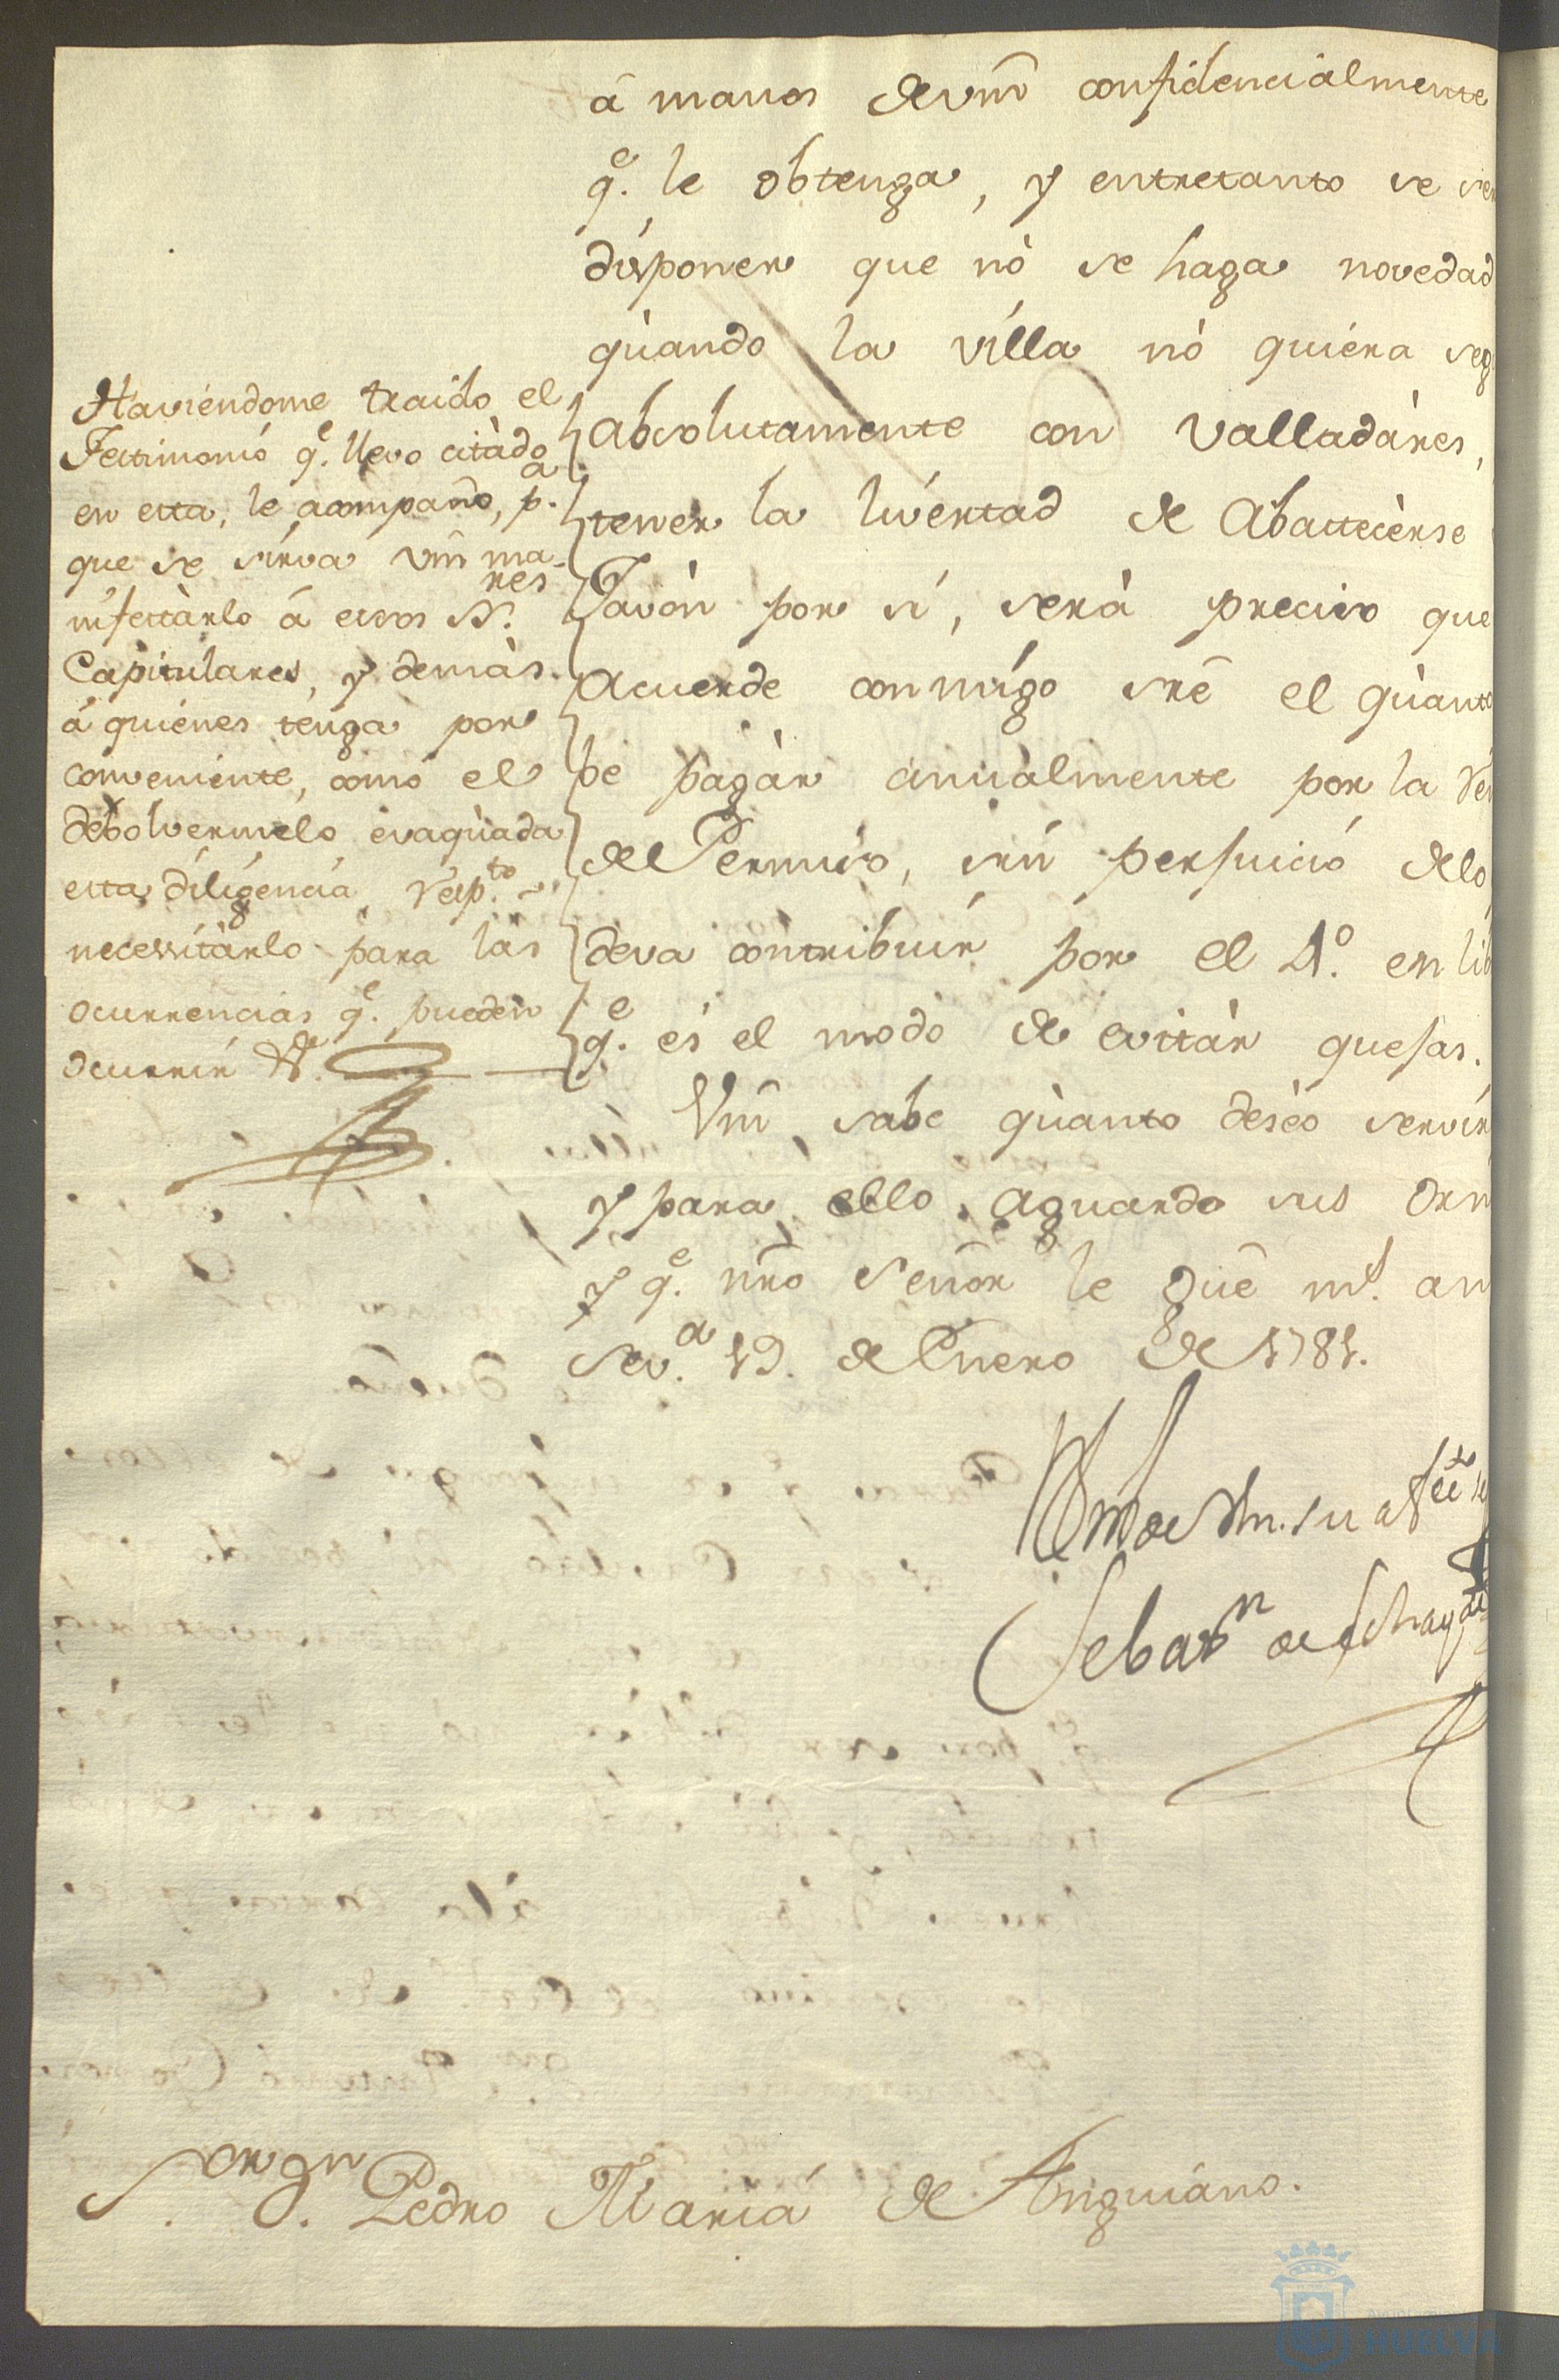 á manos de vm̃ confidencialmente
q.e le obtenga, y entretanto se
disponer que nó se haga novedad
quando la villa nó quiéra
absolutamente con Valladáres,
tener la livertad de Abastecèrse
Javòn por sí, será preciso que
acuerde conmígo sr̃e el quanto
pagàr anualmente por la
del Permiso, sin perjuició delo
deva contribuír por el A.º en
q.e és el modo de evitár quejas.
Vm̃ sabe quanto deséo servir
y para ello aguardo sus
y q.e nr̃o Señor le gue m.s
Sev.a 19. de Enero de 1781.
BlmdeVm. su af.to
Sebas.n de
Haviéndome traido el
Testimonió q.e llevo citàdo
en esta, le acompaño, p.a
que se sírva vm̃ ma-
nifestàrlo á esos S.res
Capitulares, y demàs
á quiénes ténga por
conveniente, comó el
debolvermelo evaquada
esta diligéncia, resp.to
necessitàrlo para las
ocurrencias q.e pueden
ocurrir
S.or D.n Pedro María de Anguiáno.
HUELVA